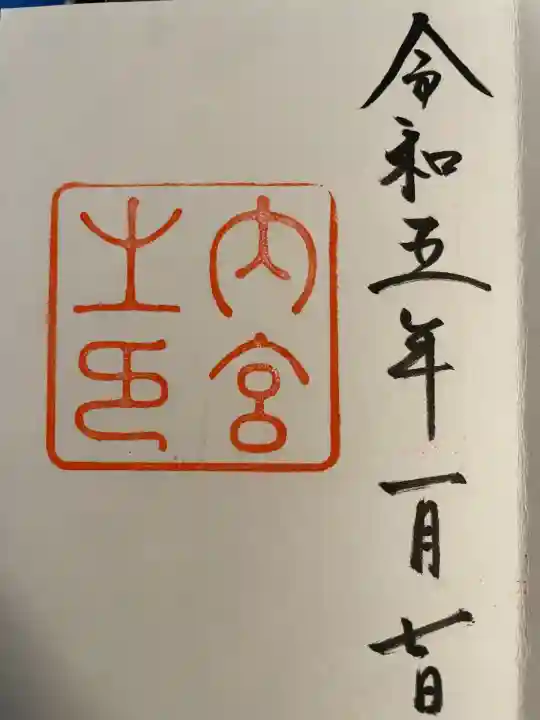 令和五年一月七日
内宮
之印